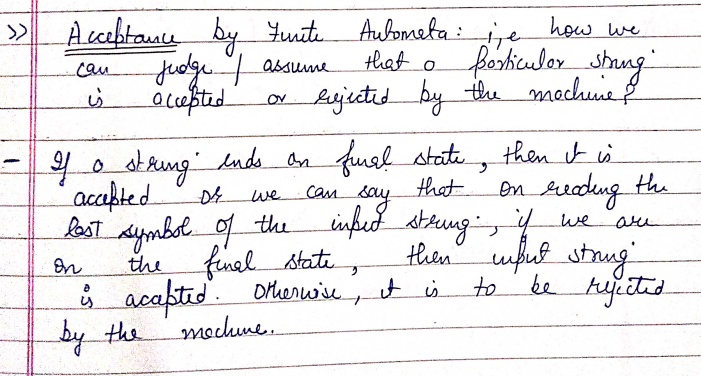 >> Acceptance by Finite Automata: i,e how we
can judge / assume that a particular string
is accepted or rejected by the machine?
- If a string ends on final state, then it is
accepted or we can say that on reading the
last symbol of the input string, if we are
on the final state, then input string
is accepted. Otherwise, it is to be rejected
by the machine.